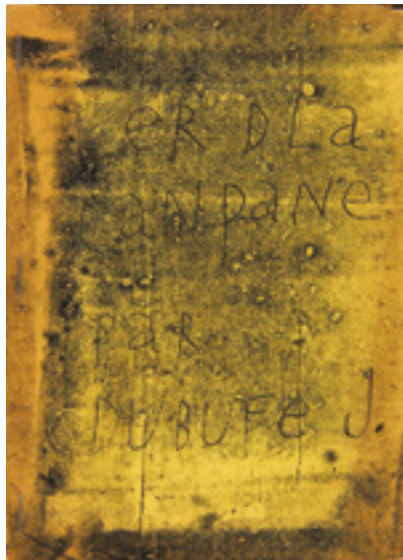 LeR DLa
CaNpaNe
PaR
DUBUFe J.